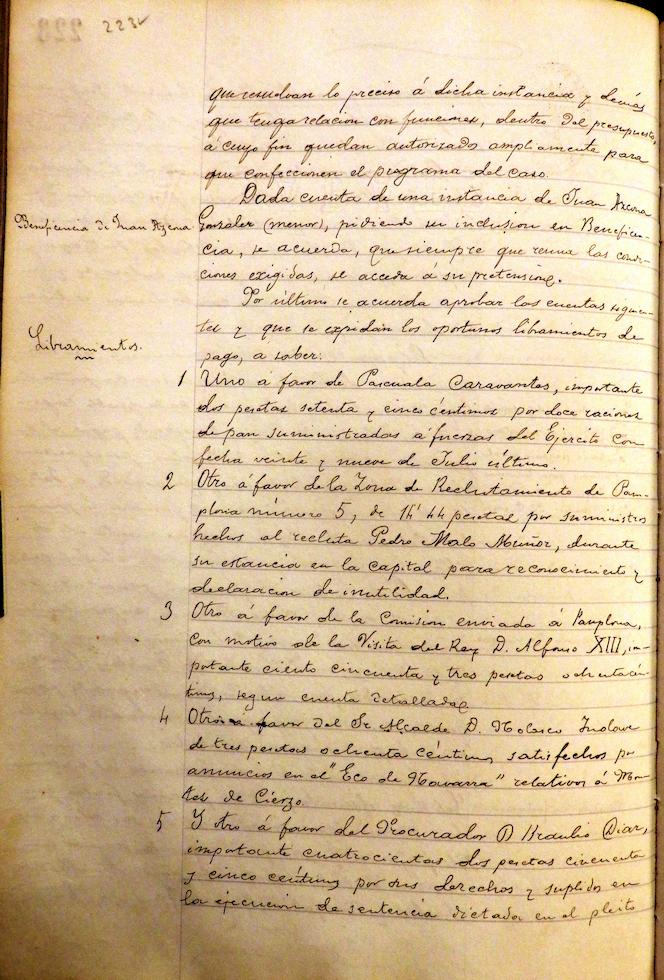 223
que resuelvan lo preciso á dicha instancia y demás
que tenga relacion con funciones, dentro del presupuesto,
á cuyo fin quedan autorizados ampliamente para
que confeccionen el programa del caso.
Dada cuenta de una instancia de Juan Azcona
Beneficencia de Juan Azcona
Gonzalez (menor), pidiendo su inclusion en Beneficen-
cia, se acuerda, que siempre que reuna las condi-
ciones exigidas, se acceda á su pretensione.
Por último se acuerda aprobar las cuentas siguien-
tes y que se expidan los oportunos libramientos de
Libramientos.
pago, á saber:
1 Uno á favor de Pascuala Caravantes, importante
dos pesetas setenta y cinco céntimos por doce raciones
de pan suministradas á fuerzas del Ejército con
fecha veinte y nueve de Julio último.
2 Otro á favor de la Zona de Reclutamiento de Pam-
plona número 5, de 14'44 pesetas por suministros
hechos al recluta Pedro Malo Muñoz, durante
su estancia en la capital para reconocimiento y
declaracion de inutilidad.
3 Otro á favor de la Comision enviada á Pamplona,
con motivo de la Visita del Rey D. Alfonso XIII, im-
portante ciento cincuenta y tres pesetas ochenta cén-
timos, segun cuenta detallada
4 Otro á favor del Sr Alcalde D. Nolasco
de tres pesetas ochenta céntimos satisfechos por
anuncios en el "Eco de Navarra" relativos á Mon-
tes de Cierzo.
5 Y otro á favor del Procurador D Braulio Diaz,
importante cuatrocientas dos pesetas cincuenta
y cinco céntimos por sus derechos y suplidos en
la ejecucion de sentencia dictada en el pleito